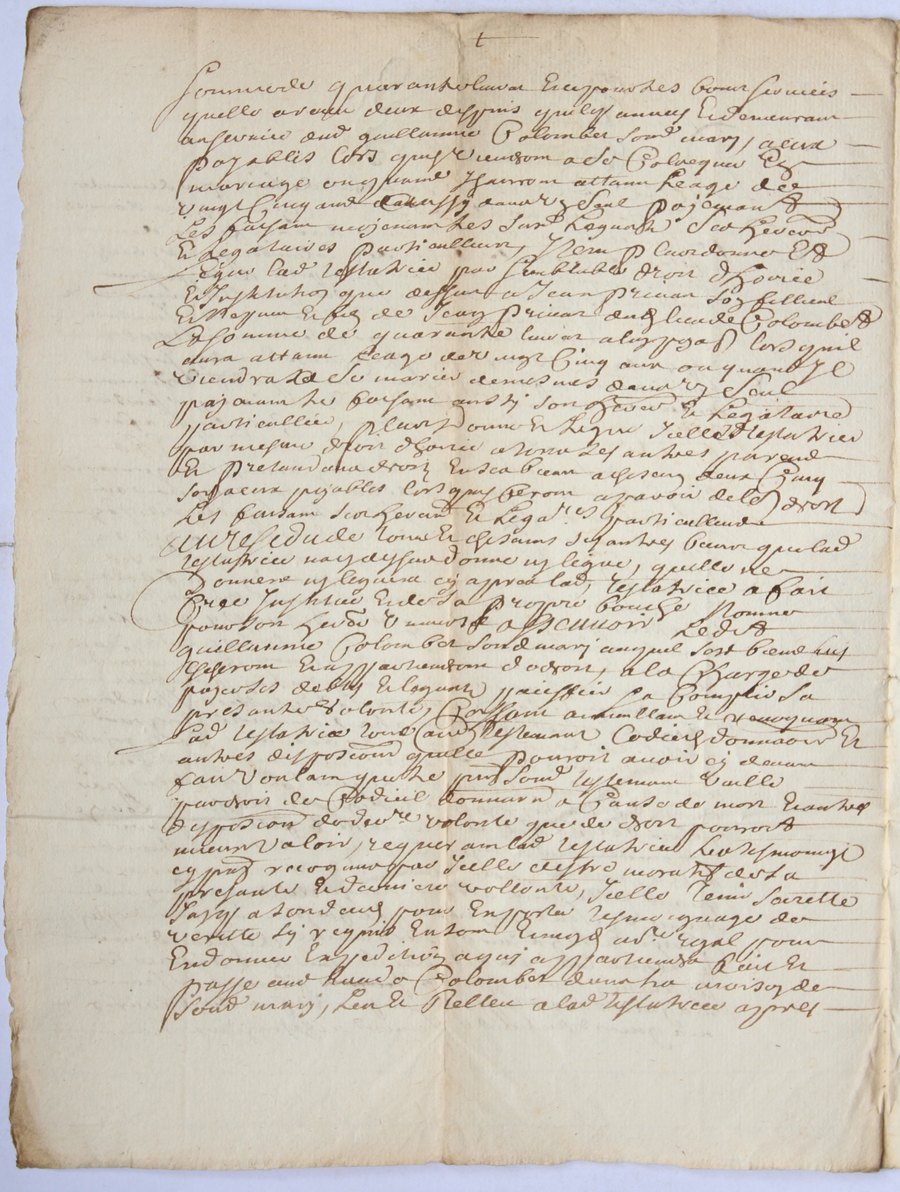 t
Somme de quarante livres En pour les bons services
quelle a reçu deux despuis quelques annees Et demeurant
au service dud guillaume Colombet sond mary, a eux
payables lors quils viendront a se Colloquer En
mariage ou quand ilz auront attaint Leage de
vingt Cinq ans deaussy dans un Seul payemant
Les faisant moyenant les susd Legats Ses heretiers
Et legataires particulliers, Item plus donne Et
Legue lad testatrice par semblable droit d'hoirie
Et Institution que dessus a Jean privat Son fillieul
Et nepveu Et filz de Jean privat dud lieu de Colombet
La somme de quarante livres a luy payable lors quil
aura attaint Leage de vingt Cinq ans ou quand Il
viendra a Se marier de mesmes dans un Seul
payemant le faisant aussy son heretier Et Legataire
particullier, plus donne Et Legue Icelle testatrice
par mesme droit d'hoirie a tous Les autres parens
Et pretendans droit En ses biens a chacun deux Cinq
solz a eux payables lors quilz feront aparoir de leur droit
Les faisant Ses heretiers Et Legatres particulliers
Au residu de tous Et chascuns Ses autres biens que lad
testatrice na cy dessus donne ny legue, quelle ne
Donnera ny leguera cy apres lad, testatrice a fait
Cree Institue Et de Sa Propre bouche Nomme
pour son heretier universel a Scavoir Ledit
guillaume Colombet Sond mary auquel Sesd biens
Seront Et appartiendront de droit, a la Charge de
payer les debtes Et legats Et accomplir Sa
presante volonte, Cassant annullant Et revoquant
Lad testatrice tous autres testament Codicilles donnaoons Et
autres dispositions quelle pouroit avoir cy devant
faict voulant que le pnt Sond testement vaille
par droit de Codicil donnaon a Cause de mort Et autre
disposition de derre volonte que de droit pourroit
mieux valoir, requerant lad testatrice Les tesmoings
cy pntz recognus par Icelle destre memoratifz de Sa
presante Et derniere vollonte, Icelle tenir Secrette
Jusqu a Son deces pour En porter tesmoignage de
verite Et requis Et a moy nore royal pour
En donner Expedition a qui appartiendra fait Et
passe aud lieu de Colombet dans la maison de
Sond mary, Leu Et Relleu a lad testatrice apres